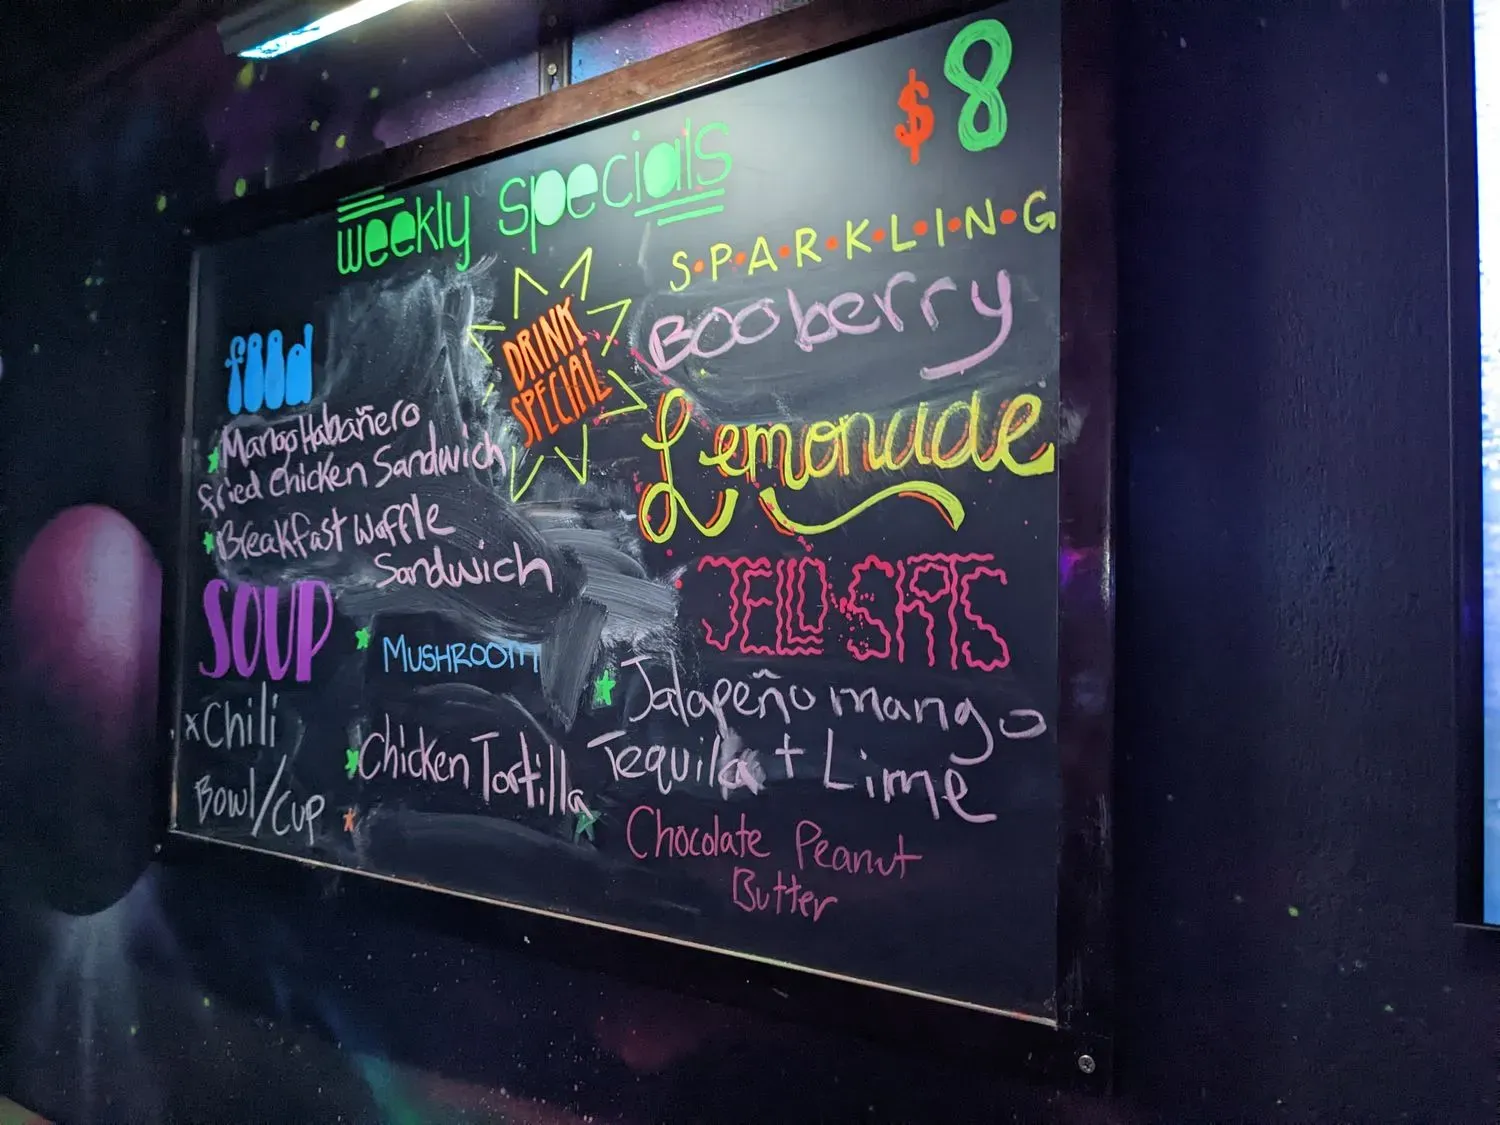 weekly specials
food
Mango Habañero
fried Chicken Sandwich
Breakfast Waffle
Sandwich
SOUP
Chili
Bowl/Cup
MUSHROOM
Chicken Tortilla
DRINK
SPECIAL
$8
S•P•A•R•K•L•I•N•G
Booberry
Lemonade
JELLO SHOTS
Jalapeño mango
Tequila + Lime
Chocolate Peanut
Butter